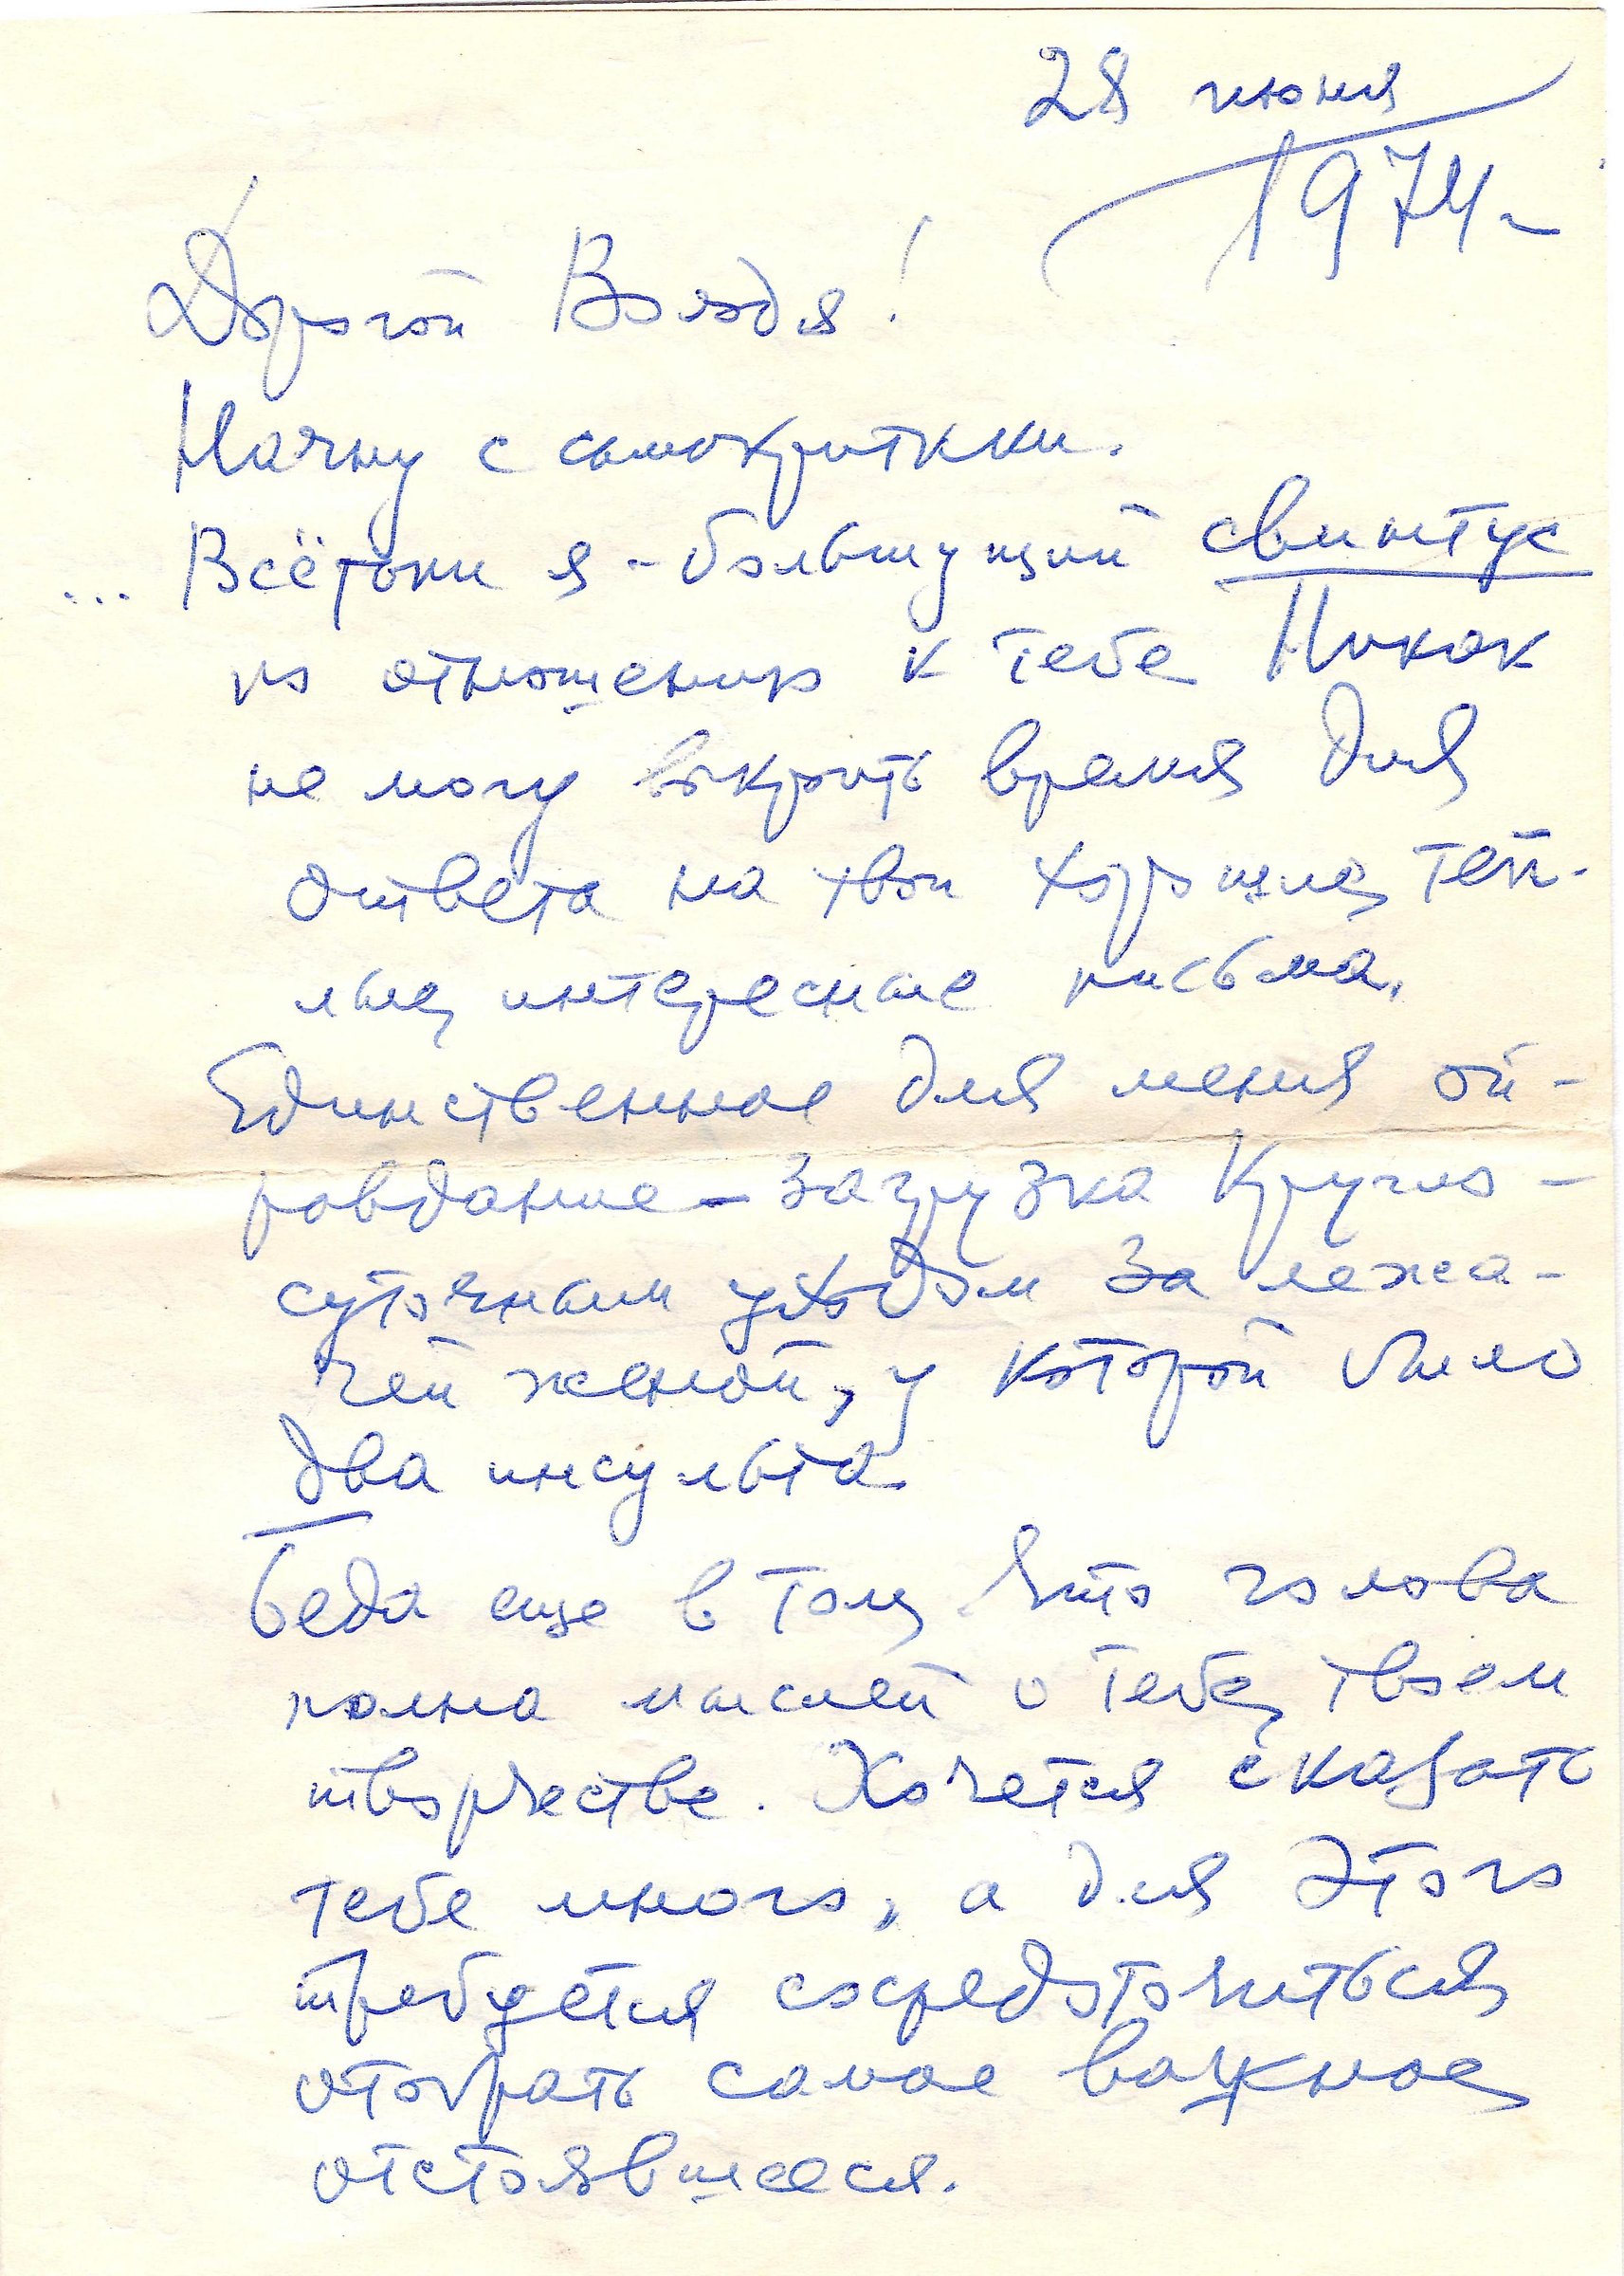 28 июня
1974
Дорогой Володя!
Начну с самокритики.
... Всётаки я - большущий свинтус
по отношению к тебе Никак
не могу выкроить время для
ответа на твои хорошие, теп-
лые, интересные письма.
Единственное для меня оп-
равдание - загрузка кругло-
суточным уходом за лежа-
чей женой, у которой было
два инсульта
Беда еще в том, что голова
полна мыслей о тебе, твоем
творчестве. Хочется сказать
тебе много, а для этого
требуется сосредоточиться,
отобрать самое важное,
отстоявшееся.